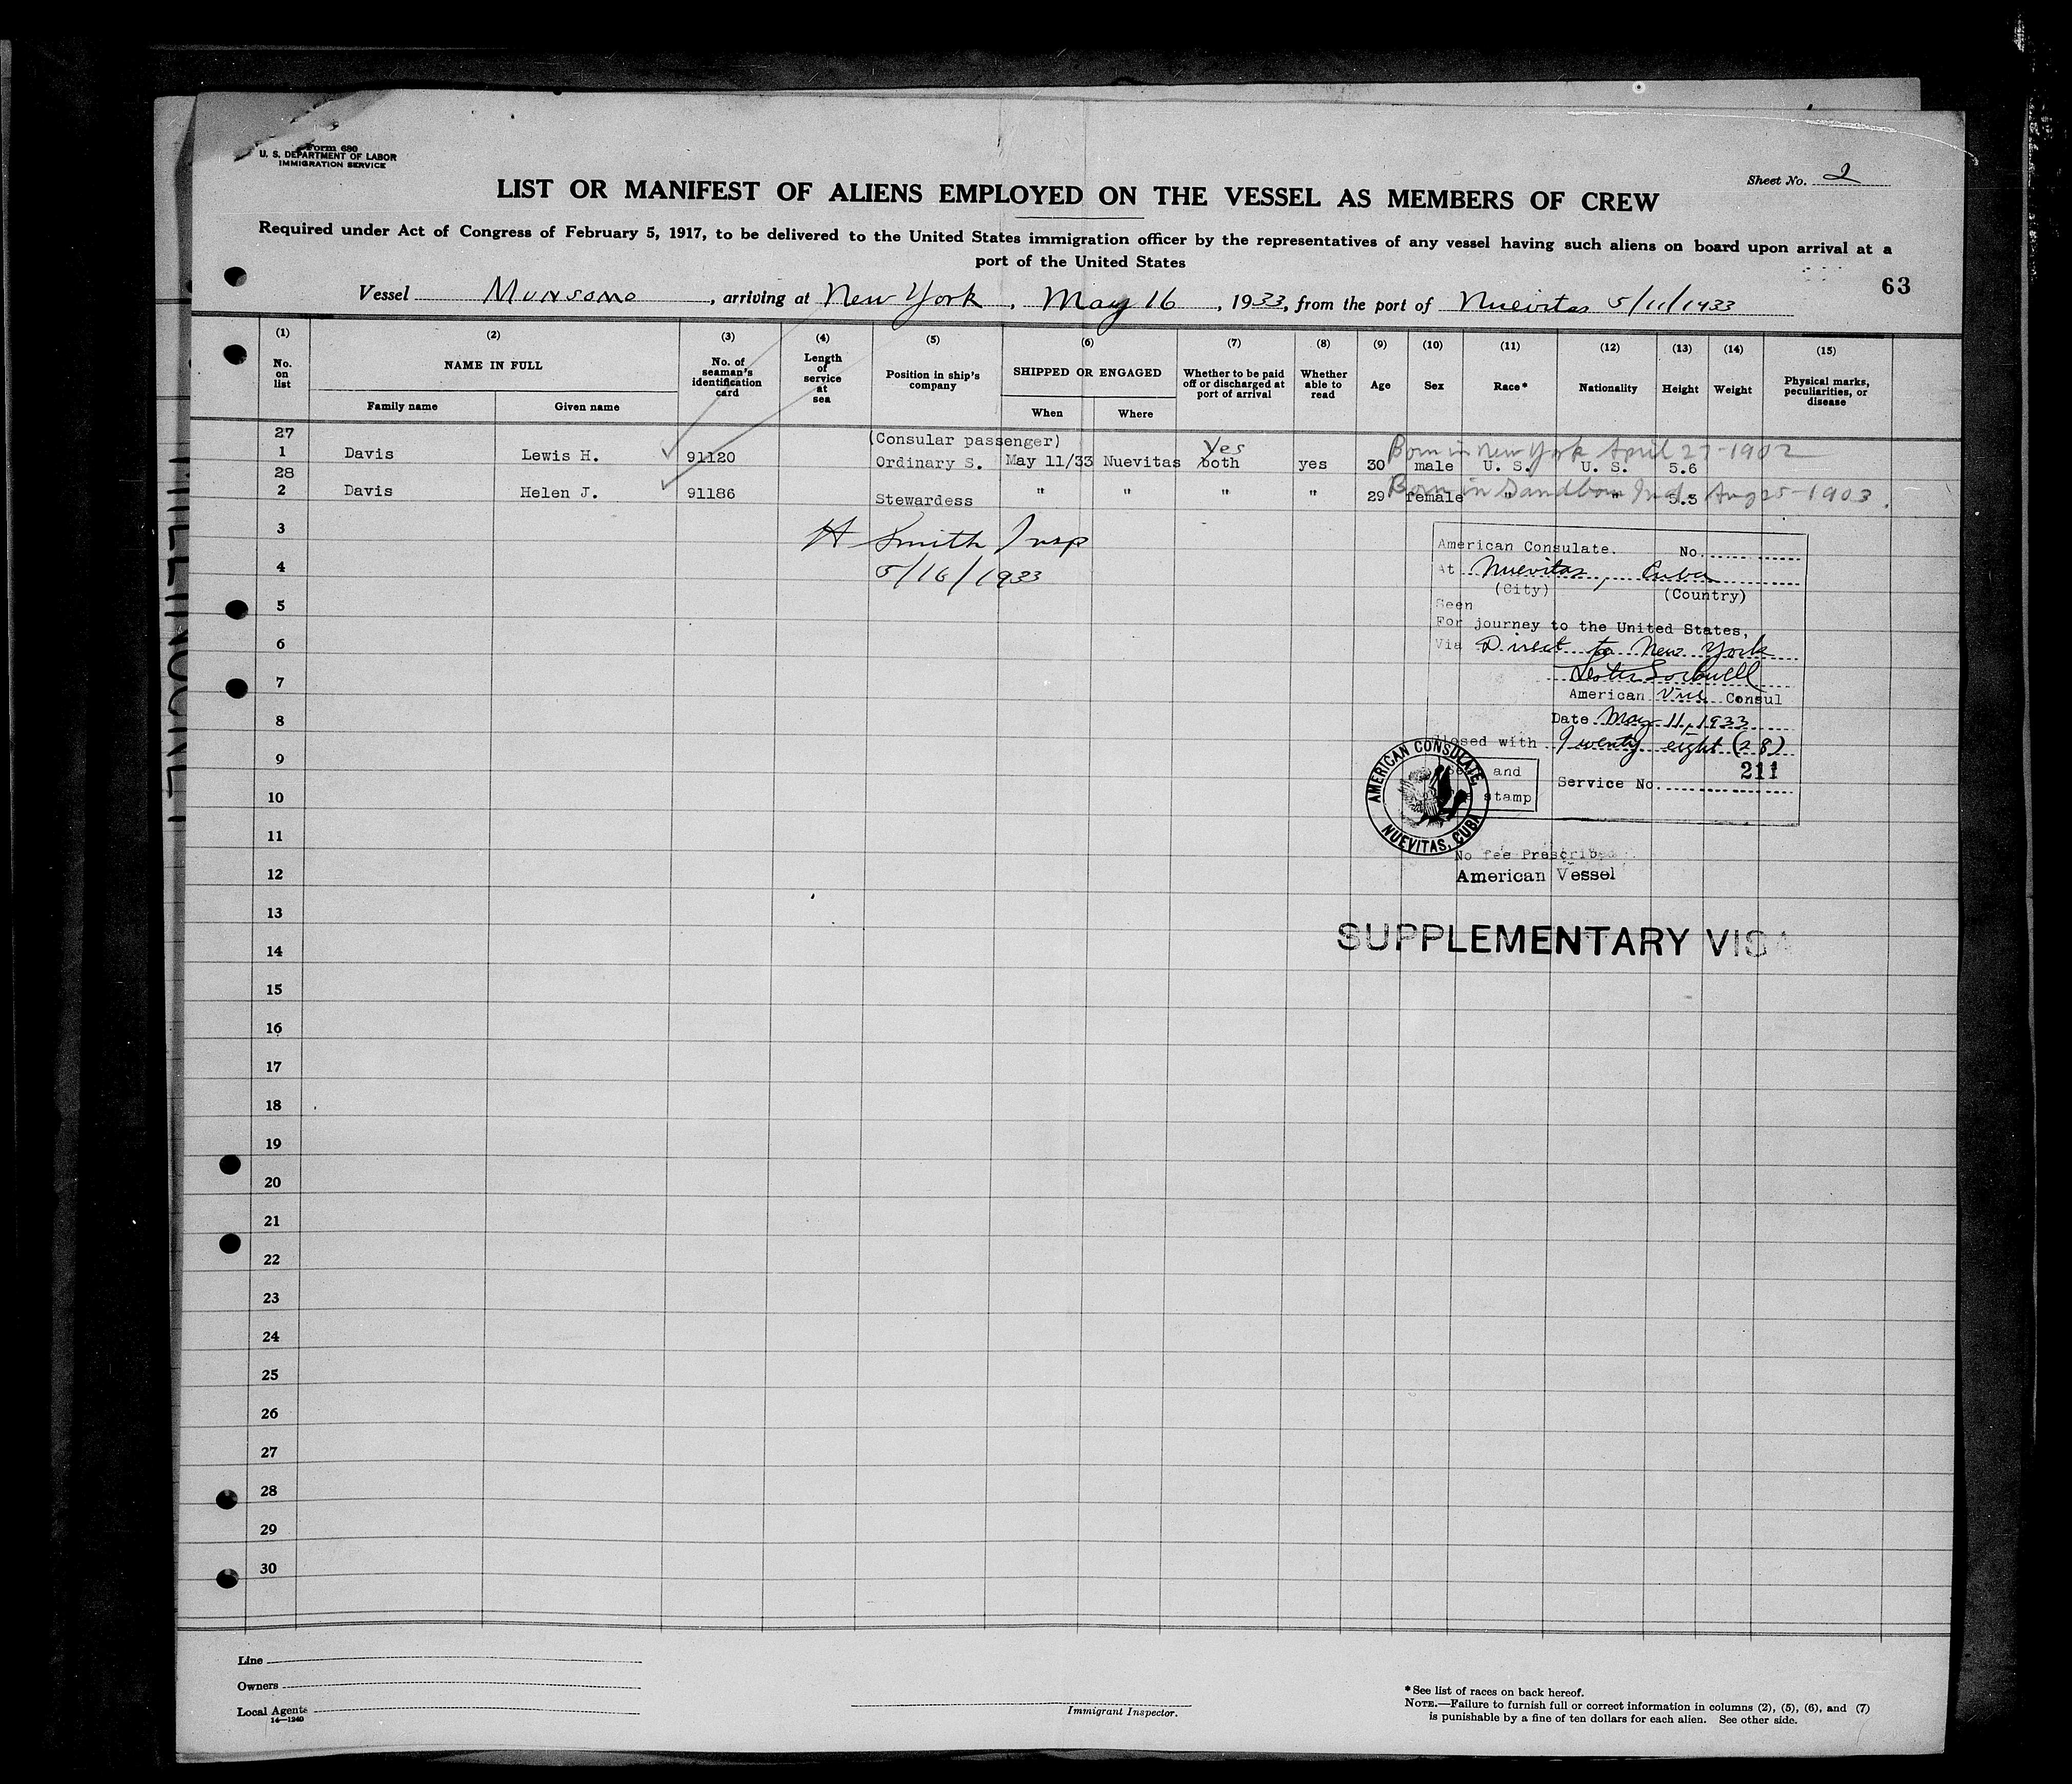 Form 680
U. S. DEPARTMENT OF LABOR
IMMIGRATION SERVICE
Sheet No. 2
LIST OR MANIFEST OF ALIENS EMPLOYED ON THE VESSEL AS MEMBERS OF CREW
Required under Act of Congress of February 5, 1917, to be delivered to the United States immigration officer by the representatives of any vessel having such aliens on board upon arrival at a
port of the United States
63
Vessel Munsomo, arriving at New York, May 16, 1933, from the port of Nuevitas 5/11/1933
(1) (2) (3) (4) (5) (6) (7) (8) (9) (10) (11) (12) (13) (14) (15)
No. on list NAME IN FULL No. of seaman's identification card Length of service at sea Position in ship's company SHIPPED OR ENGAGED Whether to be paid off or discharged at port of arrival Whether able to read Age Sex Race* Nationality Height Weight Physical marks, peculiarities, or disease
Family name Given name When Where
27 (Consular passenger) Yes Born in New York April 27-1902
1 Davis Lewis H. 91120 Ordinary S. May 11/33 Nuevitas both yes 30 male U. S. U. S. 5.6
28 Born in Sandborn Ind. Aug 25-1903.
2 Davis Helen J. 91186 Stewardess " " " " 29 female " " 5.5
3
H Smith Insp
4
5/16/1933
American Consulate. No.
At Nuevitas, Cuba
(City) (Country)
5
Seen
For journey to the United States,
6
Via Direct to New York
7
American Vice Consul
8
Date May 11, 1933
Closed with Twenty eight (28)
9
Seal and
Fee stamp
211
Service No.
AMERICAN CONSULATE,
NUEVITAS, CUBA
10
11
No fee Prescribed
12
American Vessel
13
SUPPLEMENTARY VISA
14
15
16
17
18
19
20
21
22
23
24
25
26
27
28
29
30
Line
Owners
Local Agents
14—1240
Immigrant Inspector.
* See list of races on back hereof.
NOTE.—Failure to furnish full or correct information in columns (2), (5), (6), and (7)
is punishable by a fine of ten dollars for each alien. See other side.